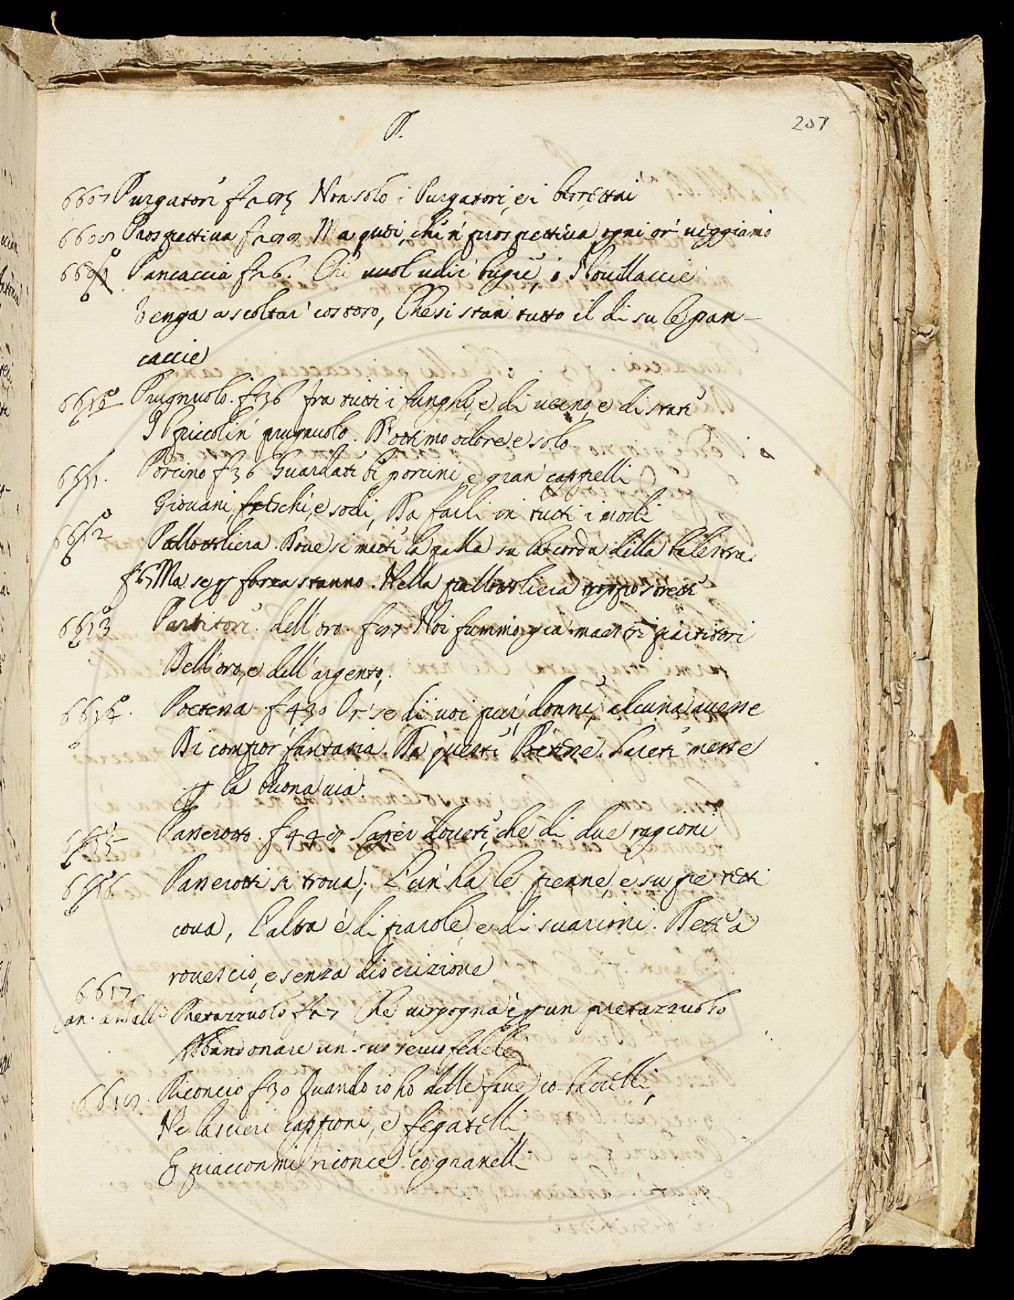 P.
207
6607 Purgatori f Non solo i Purgatori, e i berrettai
6608 Prospettiva f Ma quei, che 'n prospettiva ogni or veggiamo
Pancaccia f 26. Chi vuol udir bugie, o Novellaccie
Venga a scoltar costoro, Che si stan tutto il di su le pan-
caccie
6610 Prugnuolo. f 36 fra tutti i funghi, e di verno e di state
Il piccolin prugnuolo. D'ottimo odore e solo
6611. Porcino f 36 Guardate bei porcini, e gran cappelli
Giovani, freschi, e sodi, Da farli in tutti i modi
6612 Pallottoliera. Dove si mette la palla su la corda della balestra.
Ma se per forza stanno. Nella pallottoliera troppo strette
6613 Partitori dell'oro. f Noi fummo già maestri partitori
Dell'oro, e dell'argento,
6614. Poccena f 430 Or se di voi pur, donne, alcuna avesse
Di comfior fantasia. Da queste messe
per la buona via
6615 Passerotto. f 448 Saper dovete, che di due ragioni
6616 Passerotti si trova; L'un ha le penne, e su pe' tetti
cova, L'altro è di parole, e di svarioni. Dett' a
rovescio, e senza discrizione
6617
Can. a ball. f Che vergogna è per un
Abbandonare un suo servo fedele
6618. f 30 Quando io ho delle fave co baccelli,
Ne lascerei capponi, e fegatelli
E piacconmi co granelli